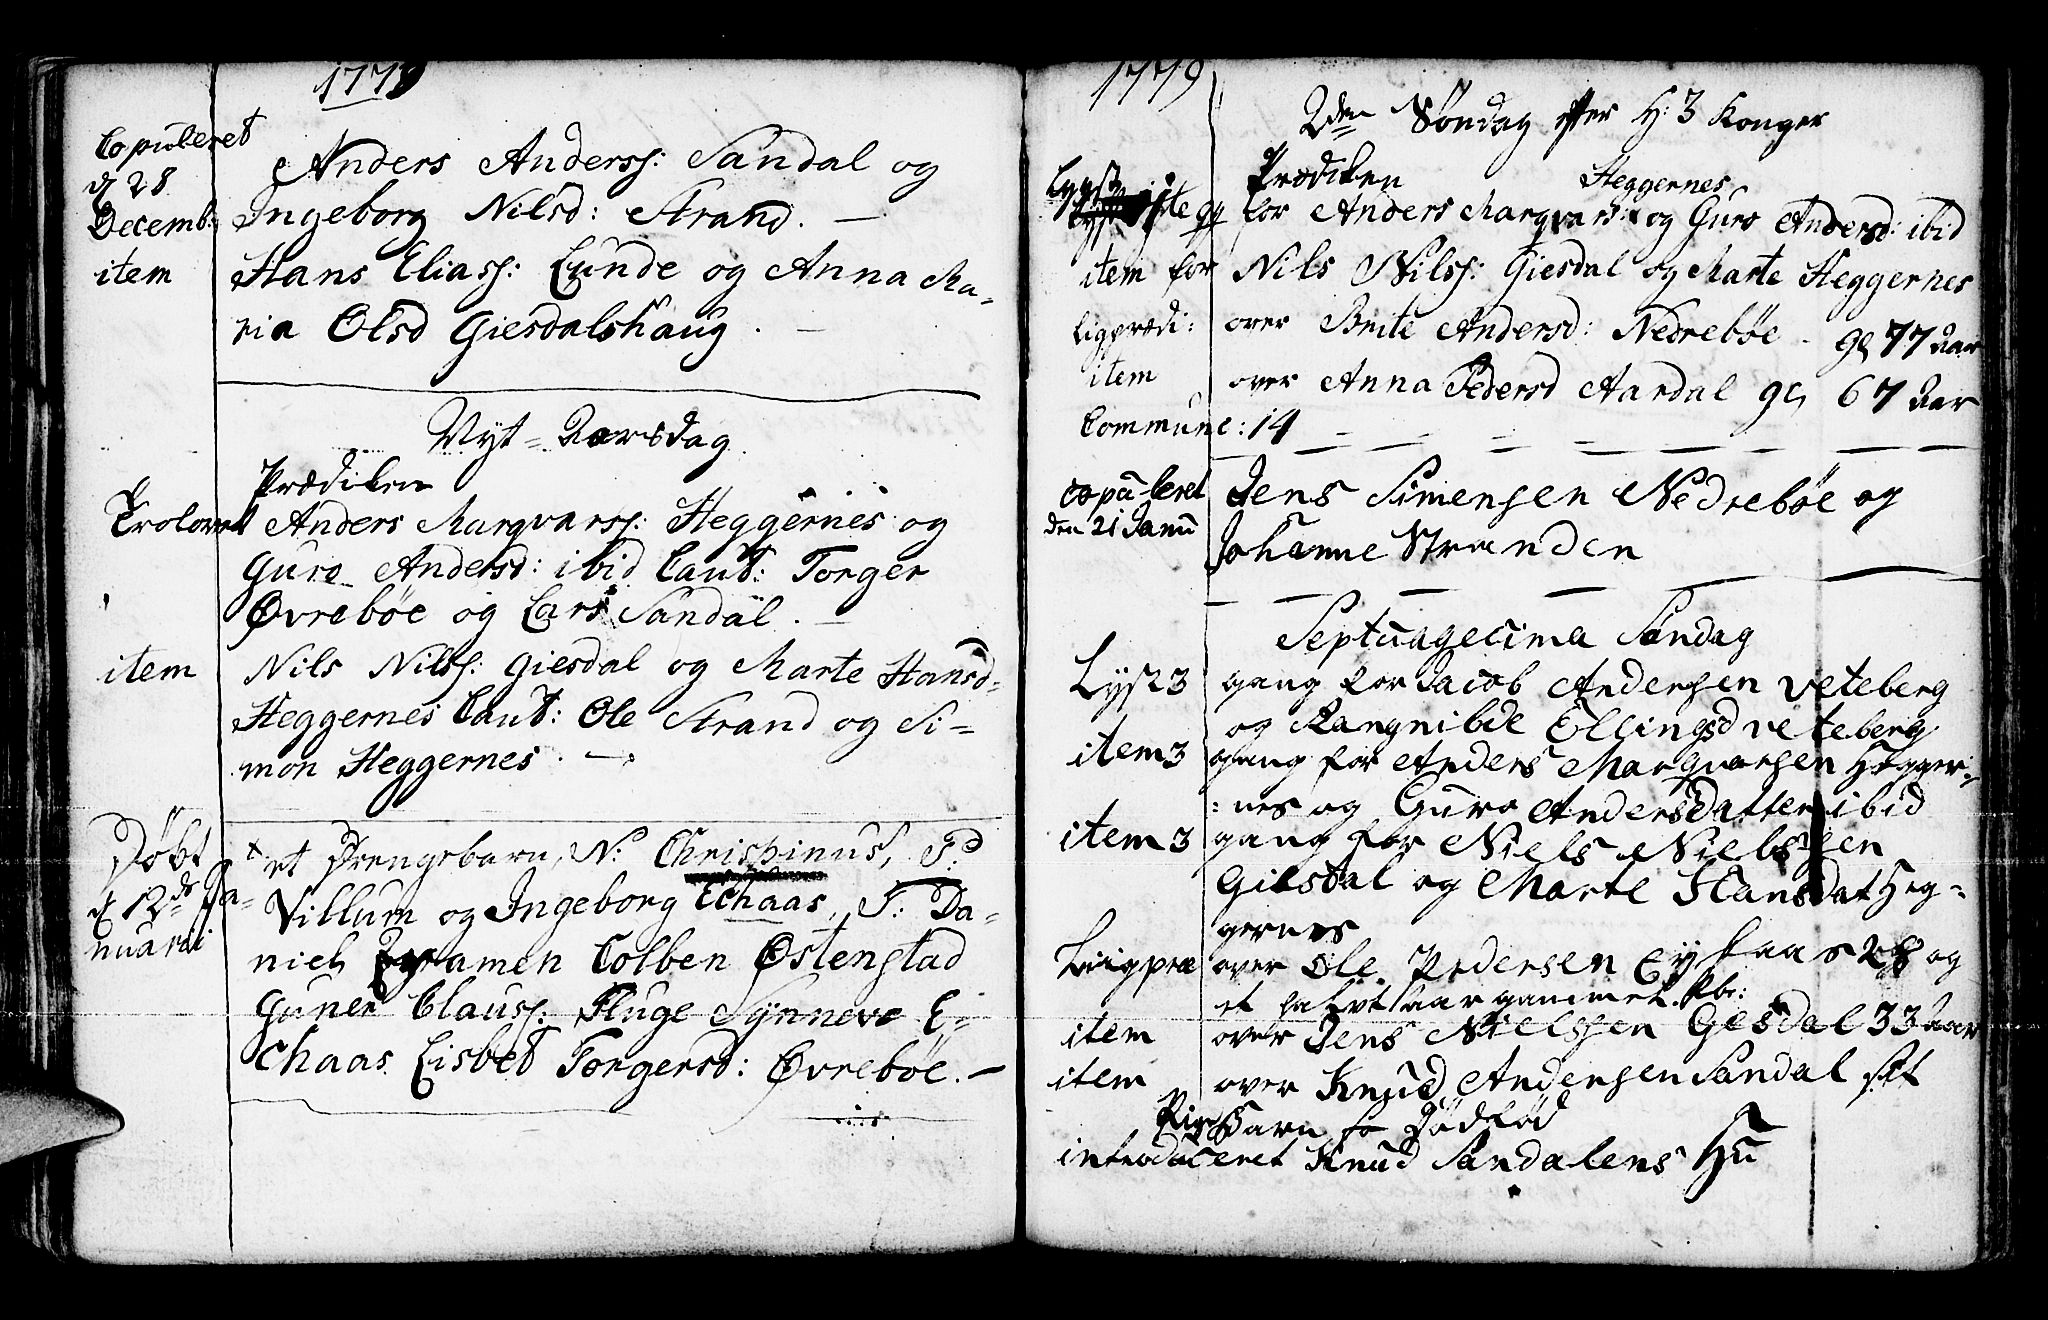 1779
Copuleret Anders Anderss: Sandal og
d 28 Decemb: Ingeborg Nilsd: Strand. —
item Hans Eliass: Lunde og Anna Ma-
ria Olsd Giesdalshaug. —
Nyt-Aarsdag
Prædiken
Trolovet Anders Marqvarss: Heggernes og
Guro Andersd: ibid Caut: Torger
Øvrebøe og Lars Sandal. —
item Nils Nilss: Giesdal og Marte Hansd-
Heggernes Caut: Ole Strand og Si=
mon Heggernes. —
Døbt et Drengebarn, N: Chrispinus, F:
d 12 Ja- Villum og Ingeborg Echaas, T: Da-
nuarii niel Colben Østenstad
Guner Clauss: Fluge Synneve E-
chaas Lisbet Torgersd: Øvrebøe. —
1779
2den Søndag efter H: 3 Konger
Prædiken Heggernes
Lyst 1ste g for Anders Marqvars: og Guro Andersd: ibid
item for Nils Nilss: Giesdal og Marte Heggernes
ligprædi: over Brite Andersd: Nedrebøe - gl 77 Aar
item over Anna Pedersd Aardal gl 67 Aar
Commune: 14
copuleret Jens Simensen Nedrebøe og
den 21 Janu Johanne Stranden
Septuagecima Søndag
Lyst 3 gang for Jacob Andersen Veteberg
og Rangnilde Ellingsd veteberg
item 3 gang for Anders Marqvarsen Hegger-
:nes og Guro Andersdatter ibid
item 3 gang for Niels Nielssen
Giesdal og Marte Hansdat Heg=
gernes
Liigpræ over Ole Pedersen Eyskaas 28 og
et halvt aar gammel
item over Jens Nielssen Gesdal 33 Aar
item over Knud Andersen Sandal sit
Pige Barn Dødfød
introduceret Knud Sandalens Hu